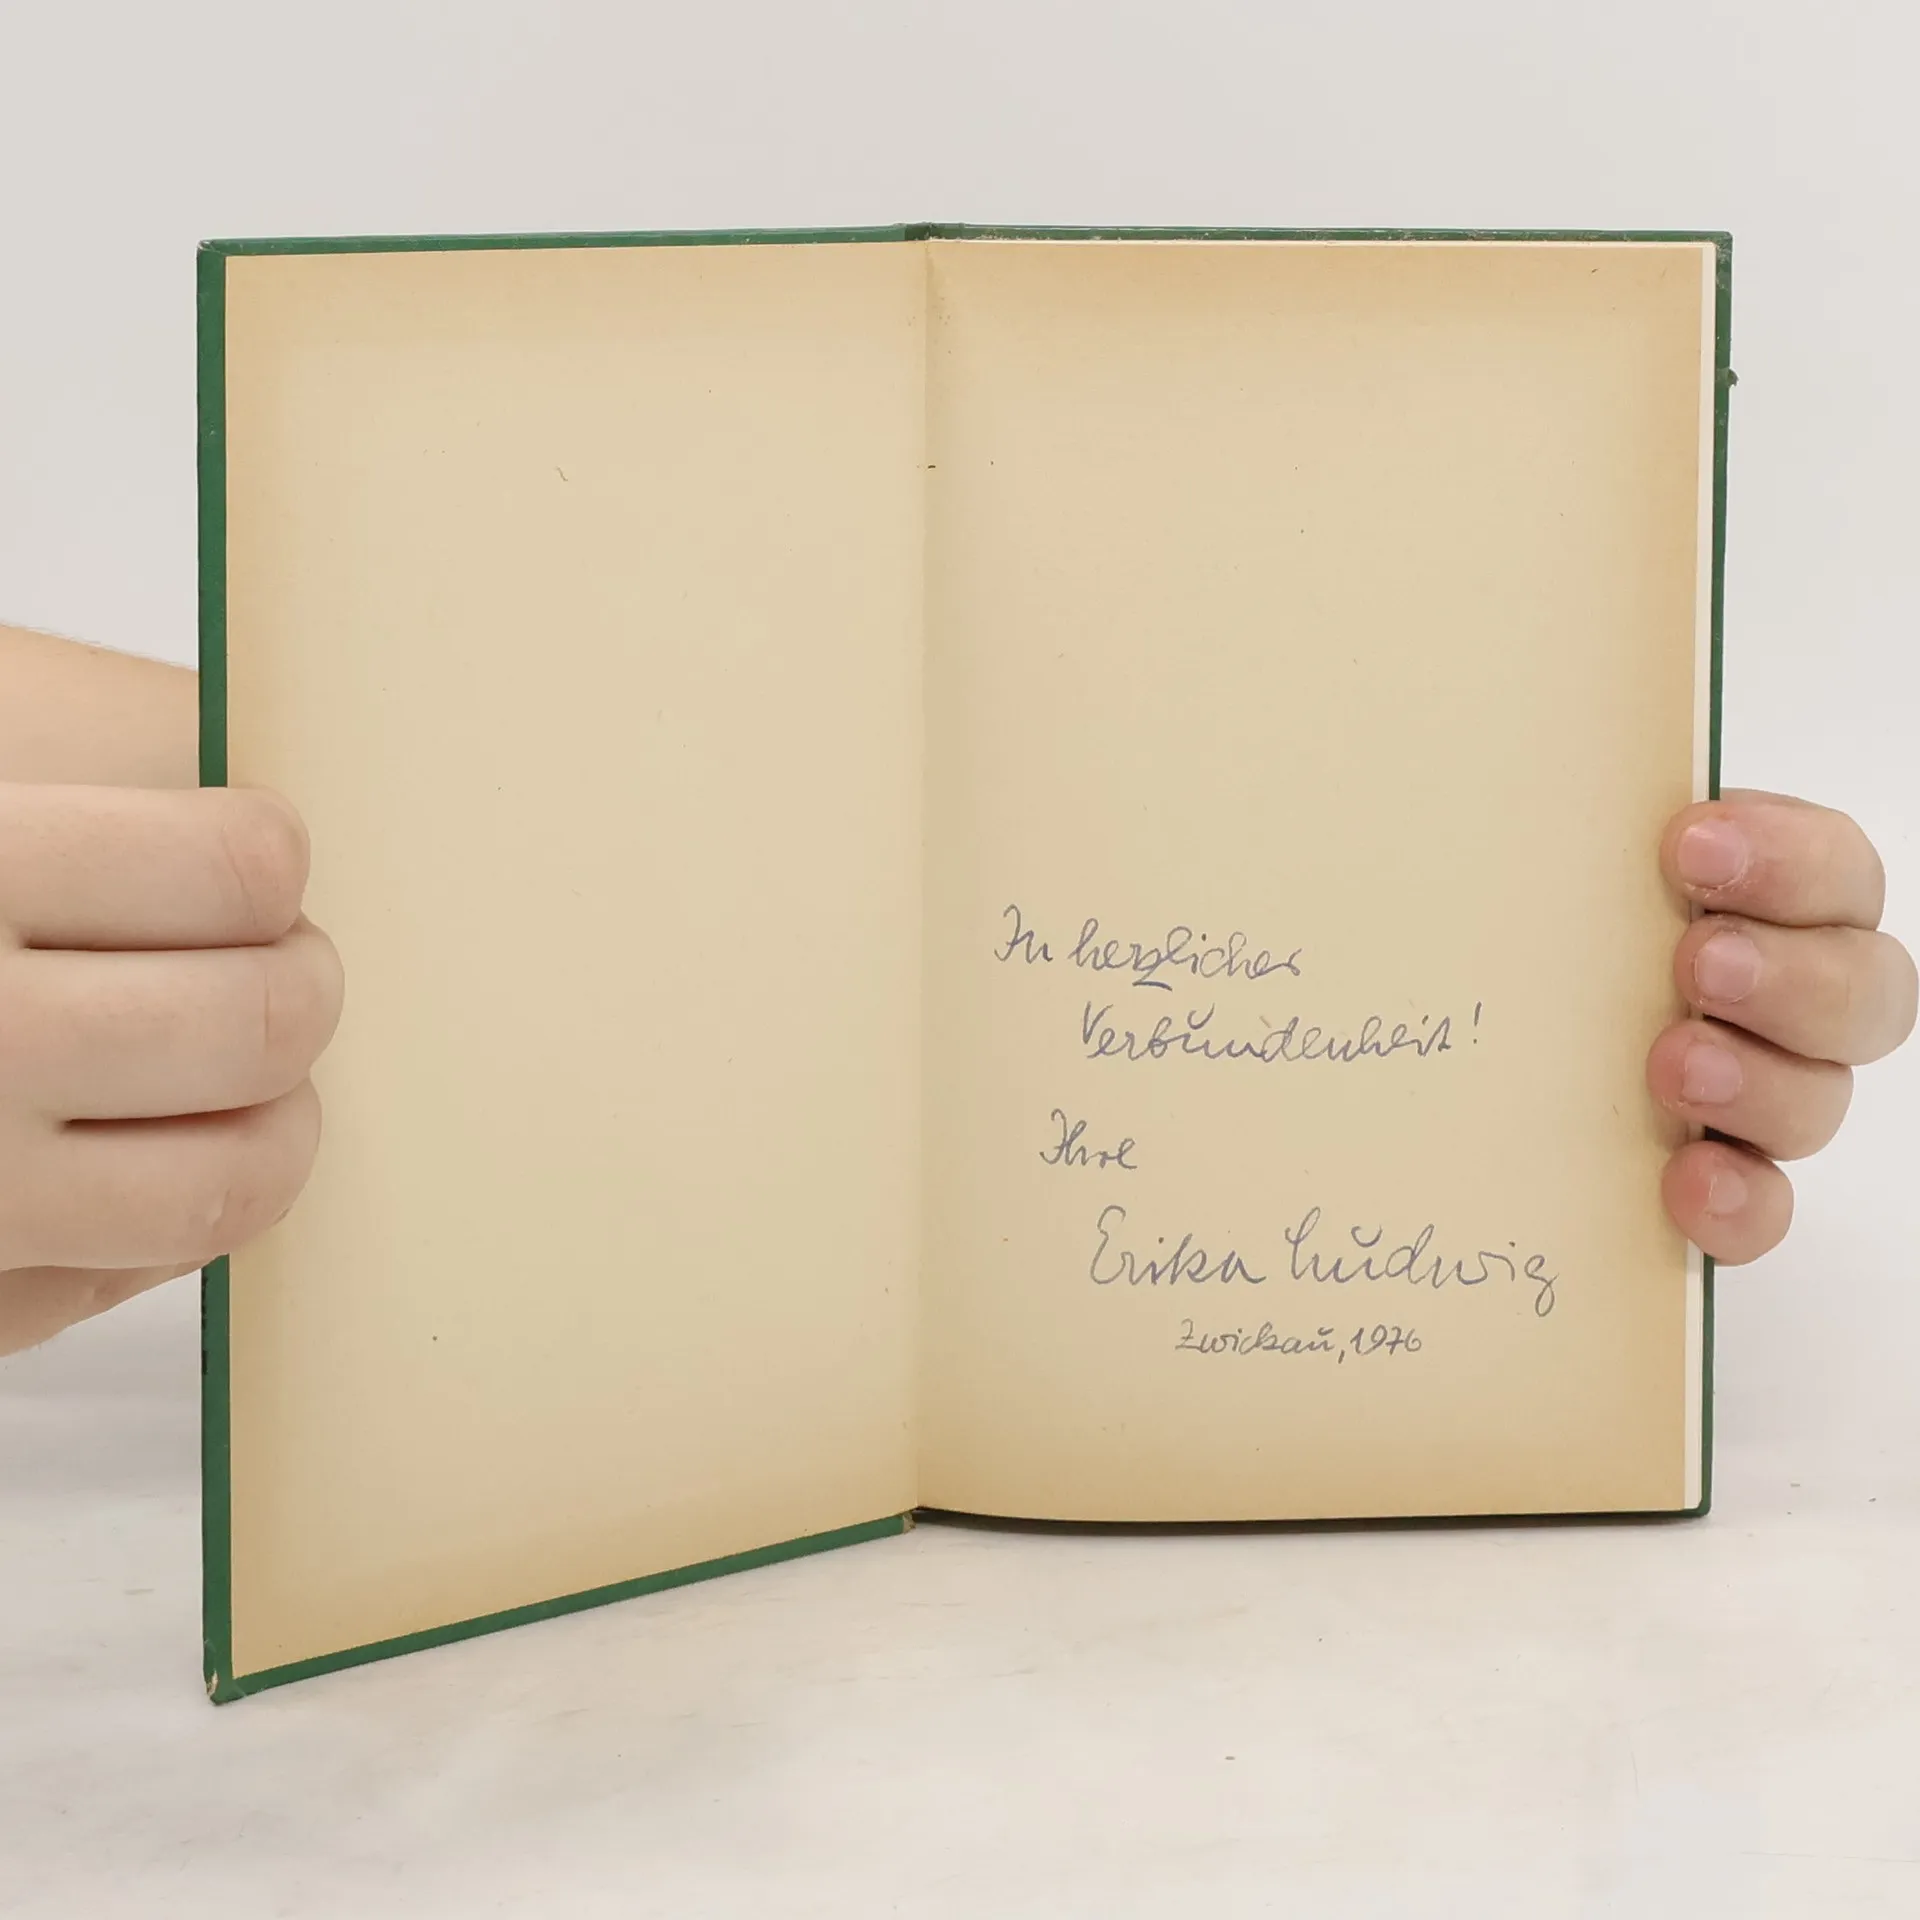 In herzlicher
Verbundenheit!
Ihre
Erika Ludwig
Zwickau, 1976